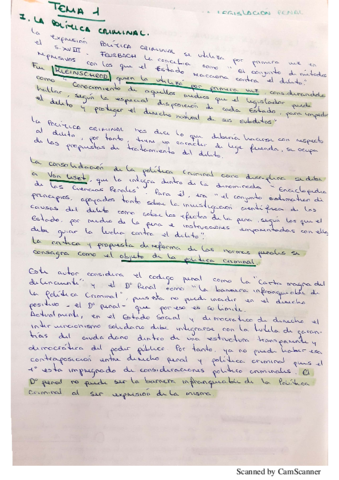 TEMA 1 LEGISLACIÓN PENAL
1. LA POLÍTICA CRIMINAL.
La expresión POLÍTICA CRIMINAL se utiliza por primera vez en
el S.XVIII. FEUERBACH la concebía como el conjunto de métodos
represivos con los que el Estado reacciona contra el delito.
Fue KLEINSCHROD quien la utilizó por primera vez, considerándola
como conocimiento de aquellos medios que el legislador puede
hallar, según la especial disposición de cada Estado, para impedir
el delito y proteger el derecho natural de sus súbditos.
La Política criminal nos dice lo que debería hacerse con respecto
al delito, por tanto tiene un carácter de lege ferenda, se ocupa
de las propuestas de tratamiento del delito.
La consolidación de la política criminal como disciplina se debe
a Von Liszt, que la integra dentro de su denominada "Enciclopedia
de las Ciencias Penales". Para él, era "el conjunto sistemático de
principios, apoyados tanto sobre la investigación científica de las
causas del delito como sobre los efectos de la pena, según los que el
Estado por medio de la pena e instrucciones emparentadas con ella,
debe guiar la lucha contra el delito".
La crítica y propuesta de reforma de las normas penales se
consagra como el objeto de la política criminal.
Este autor considera el código penal como la "Carta magna del
delincuente" y el Dº Penal como "la barrera infranqueable de
la Política Criminal", puesto no puede incidir en el derecho
positivo -el Dº penal- que por eso es su límite.
Actualmente, en el Estado Social y democrático de derecho el
intervencionismo solidario debe integrarse con la tutela de garan-
tías del ciudadano dentro de una estructura transparente y
democrática del poder público. Por tanto, ya no puede haber esa
contraposición entre derecho penal y política criminal pues el
1º está impregnado de consideraciones político criminales. El
Dº penal no puede ser la barrera infranqueable de la Política
Criminal al ser expresión de la misma.
Scanned by CamScanner